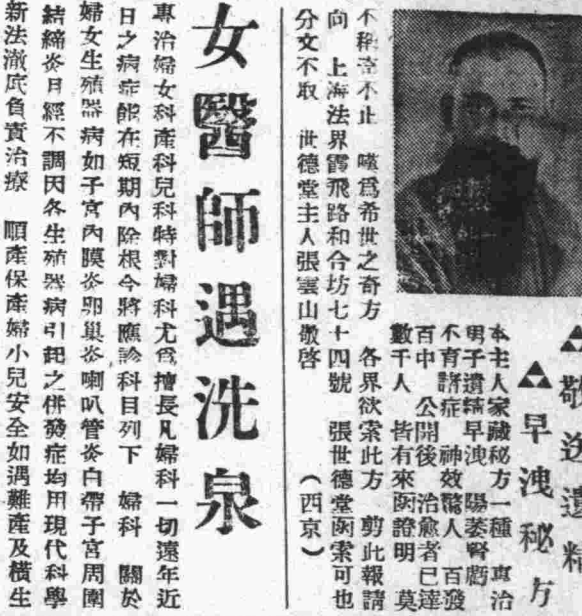 ▲敬送遺精
▲早洩秘方
本主人家藏秘方一種 專治
男子遺精早洩 陽萎腎虧
不育諸症 神效驚人 百發
百中 公開後 治愈者已達
數千人 皆有來函證明 莫
不稱 不止 嘆爲希世之奇方 各界欲索此方 剪此報請
向 上海法界霞飛路和合坊七十四號 張世德堂函索可也
分文不取 世德堂主人張雲山敬啓 （西京）
女醫師遇洗泉
專治婦女科產科兒科特對婦科尤爲擅長凡婦科一切遠年近
日之病症能在短期內除根今將應診科目列下 婦科 關於
婦女生殖器病如子宮內膜炎卵巢炎喇叭管炎白帶子宮周圍
結締炎月經不調因各生殖器病引起之併發症均用現代科學
新法澈底負責治療 順產保產婦小兒安全如遇難產及橫生